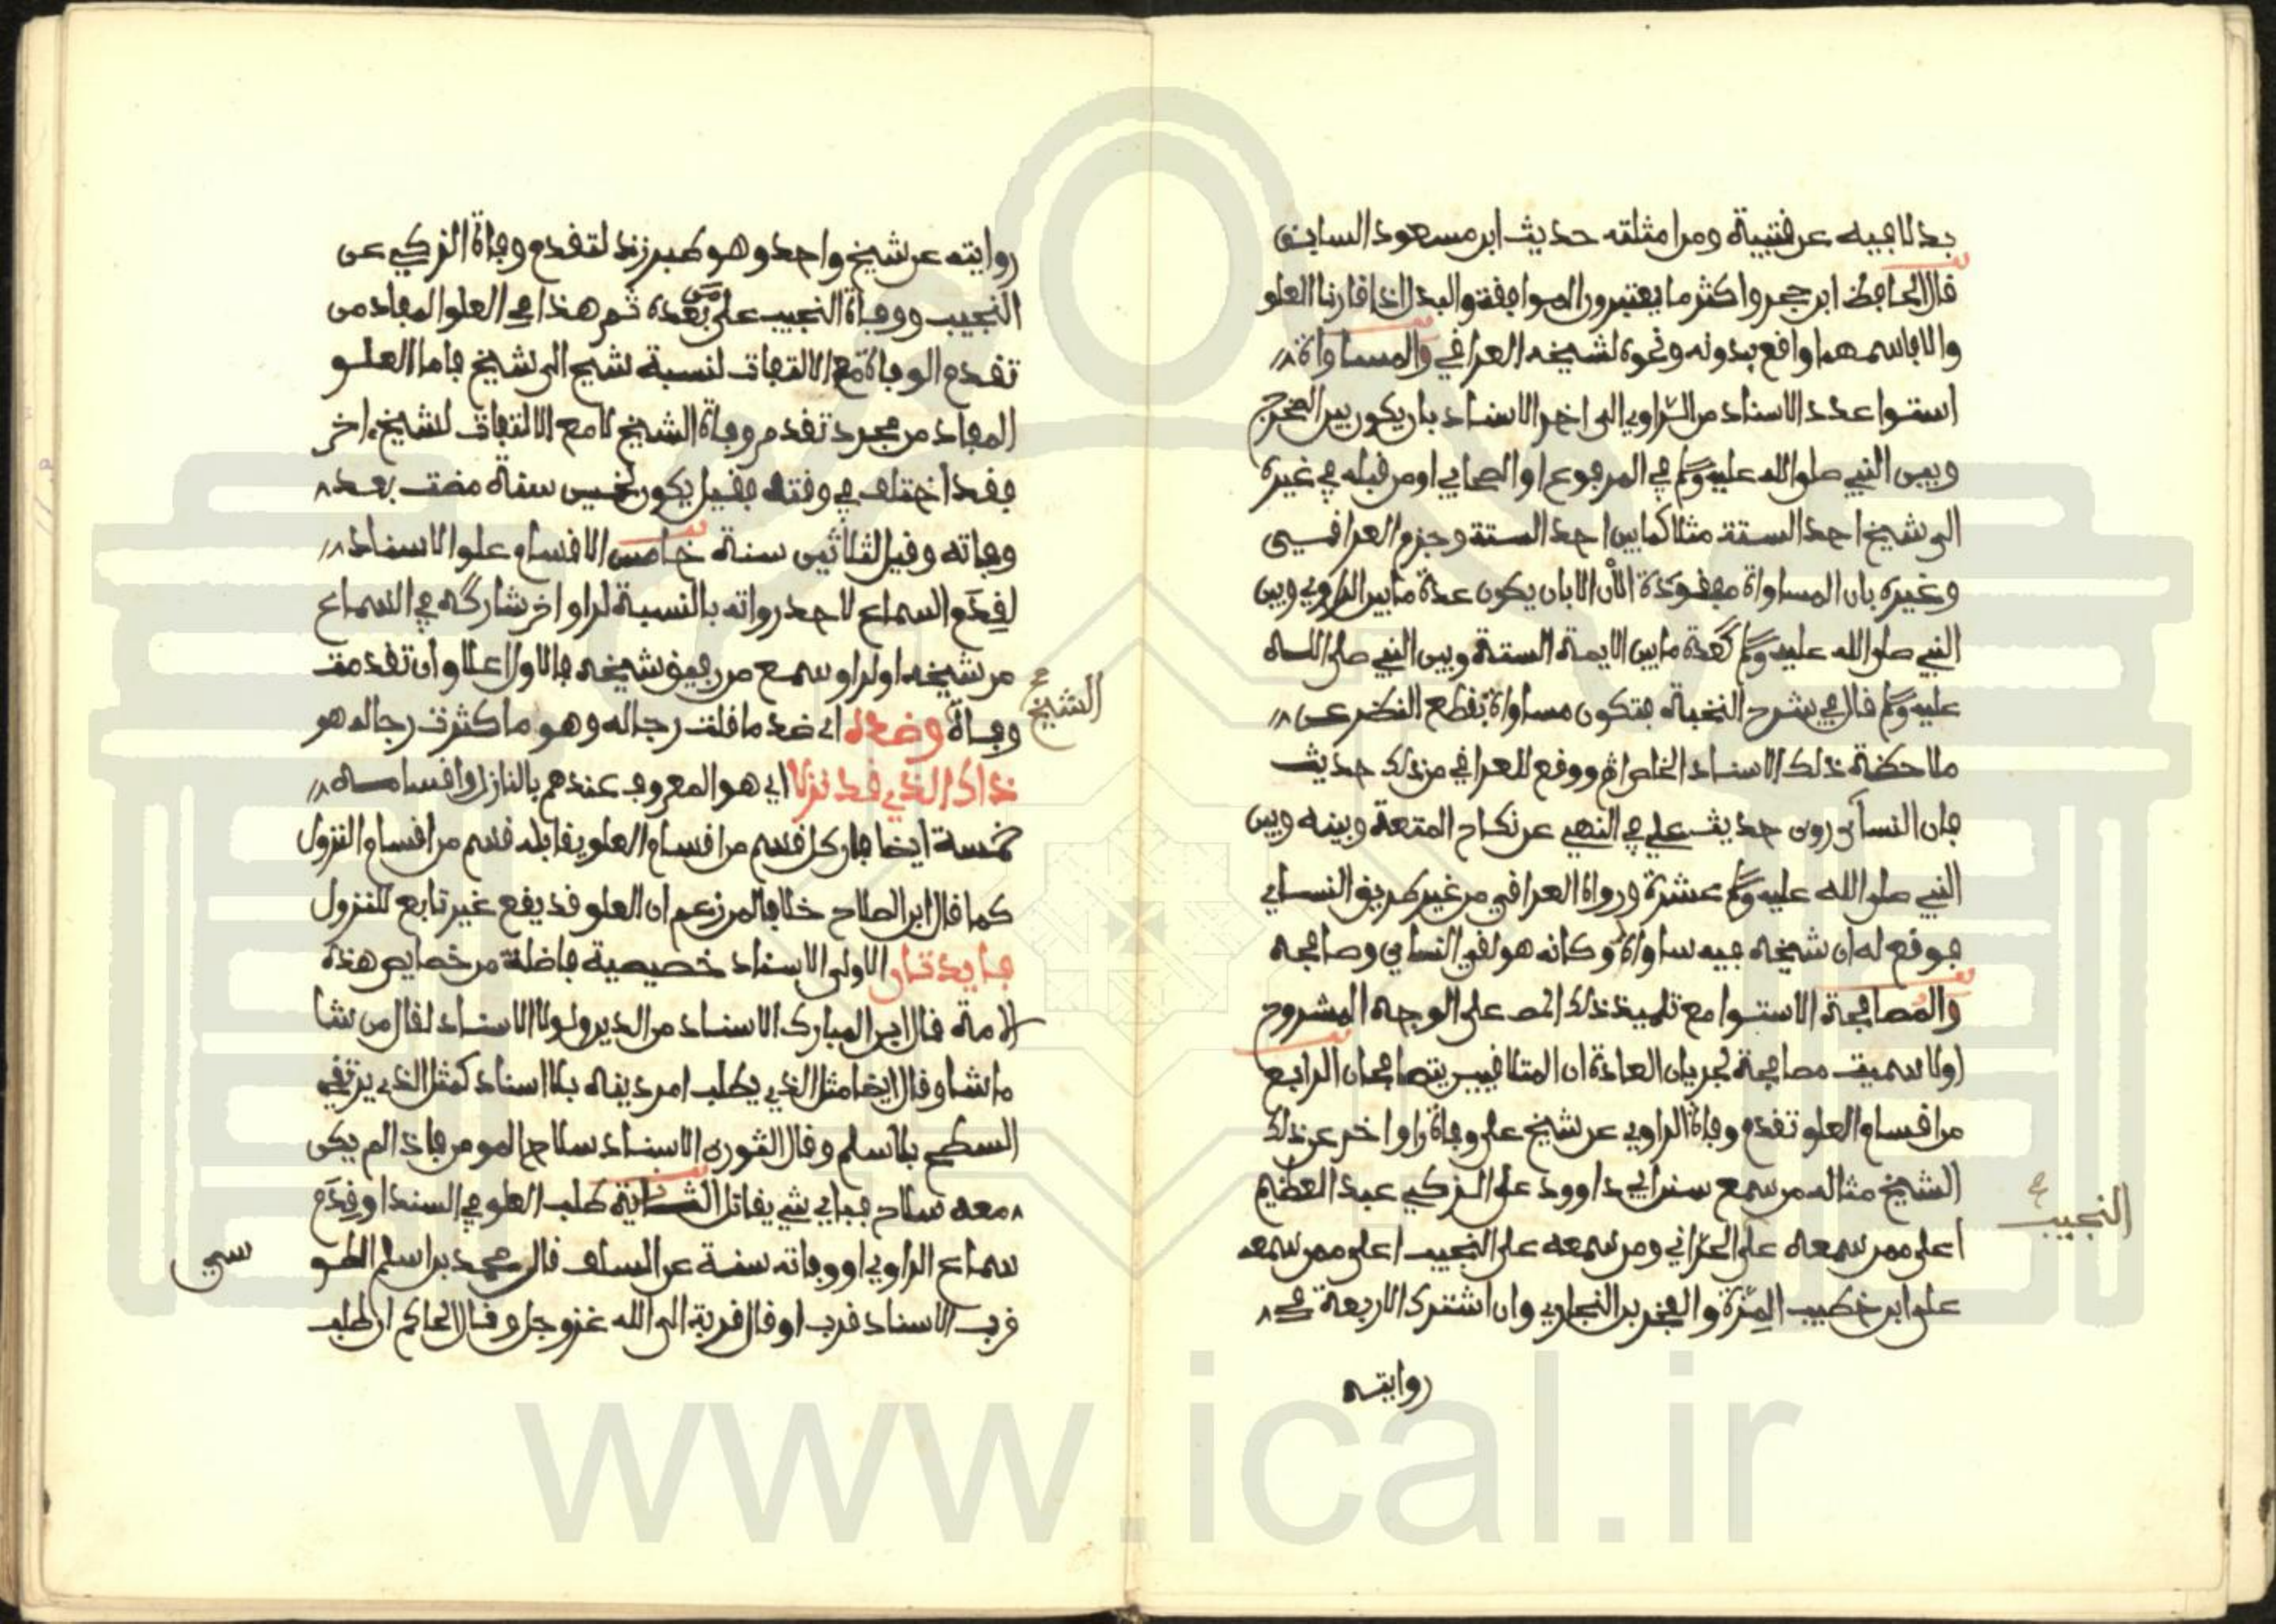 بدلا فيه عن قتيبة ومن امثلته حديث ابن مسعود السابق
قال الحافظ ابن حجر واكثر ما يعتبرون الموافقة والبدل اذا قارنا العلو
والا فاسمهما واقع بدونه ونحوه لشيخه العراقي والمساواة
استوا عدد الاسناد من الراوي الى اخر الاسناد بان يكون بين المخرج
وبين النبي صلى الله عليه وسلم في المرفوع او الصحابي او من قبله في غيره
الى شيخ احد الستة مثلا كما بين احد الستة وجزم العراقي
وغيره بان المساواة مفقودة الآن الا بان يكون عدة ما بين الراوي وبين
النبي صلى الله عليه وسلم كعدة ما بين الايمة الستة وبين النبي صلى الله
عليه وسلم قال في شرح النخبة فتكون مساواة بقطع النظر عن
ملاحظة ذلك الاسناد الخاص ووقع للعراقي من ذلك حديث
فان النسائي روى حديث علي في النهي عن نكاح المتعة وبينه وبين
النبي صلى الله عليه وسلم عشرة ورواه العراقي من غير طريق النسائي
فوقع له ان شيخه فيه ساواه وكانه هو لقي النسائي وصافحه
والمصافحة الاستوا مع تلميذ ذلك المص على الوجه المشروح
اولا سميت مصافحة لجريان العادة ان المتلاقيين يتصافحان الرابع
من اقسام العلو تقدم وفاة الراوي عن شيخ على وفاة راو اخر عن ذلك
الشيخ مثاله من سمع سنن ابي داوود على الزكي عبد العظيم
اعلى ممن سمعه على الحراني ومن سمعه على النجيب اعلى ممن سمعه
النجيب
على ابن خطيب المزة والفخر بن البخاري وان اشترك الاربعة في
روايته
روايته عن شيخ واحد وهو طبرزد لتقدم وفاة الزكي عن
النجيب ووفاة النجيب على من بعده ثم هذا في العلو المفاد من
تقدم الوفاة مع الالتفات لنسبة شيخ الى شيخ فاما العلو
المفاد من مجرد تقدم وفاة الشيخ لا مع الالتفات لشيخ اخر
فقد اختلف في وقته فقيل يكون لخمسين سنة مضت بعد
وفاته وقيل لثلاثين سنة خامس الاقسام علو الاسناد
لقدم السماع لاحد رواته بالنسبة لراو اخر شاركه في السماع
من شيخه او لراو سمع من رفيق شيخه فالاول اعلا وان تقدمت
الشيخ
وفاة وضده اي ضد ما قلت رجاله وهو ما كثرت رجاله هو
ذاك الذي قد نزلا اي هو المعروف عندهم بالنازل واقسامه
خمسة ايضا فان كل قسم من اقسام العلو يقابله قسم من اقسام النزول
كما قال ابن الصلاح خلافا لمن زعم ان العلو قد يقع غير تابع للنزول
فايدتان الاولى الاسناد خصيصة فاضلة من خصايص هذه
الامة قال ابن المبارك الاسناد من الدين ولولا الاسناد لقال من شا
ما شا وقال ايضا مثل الذي يطلب امر دينه بلا اسناد كمثل الذي يرتقي
السطح بلا سلم وقال الثوري الاسناد سلاح المومن فاذا لم يكن
معه سلاح فباي شي يقاتل الثانية طلب العلو في السند او قدم
سماع الراوي او وفاته سنة عن السلف قال محمد بن اسلم الطو
سي
قرب الاسناد قرب او قال قربة الى الله عز وجل وقال الحاكم ان طلب
www.ical.ir